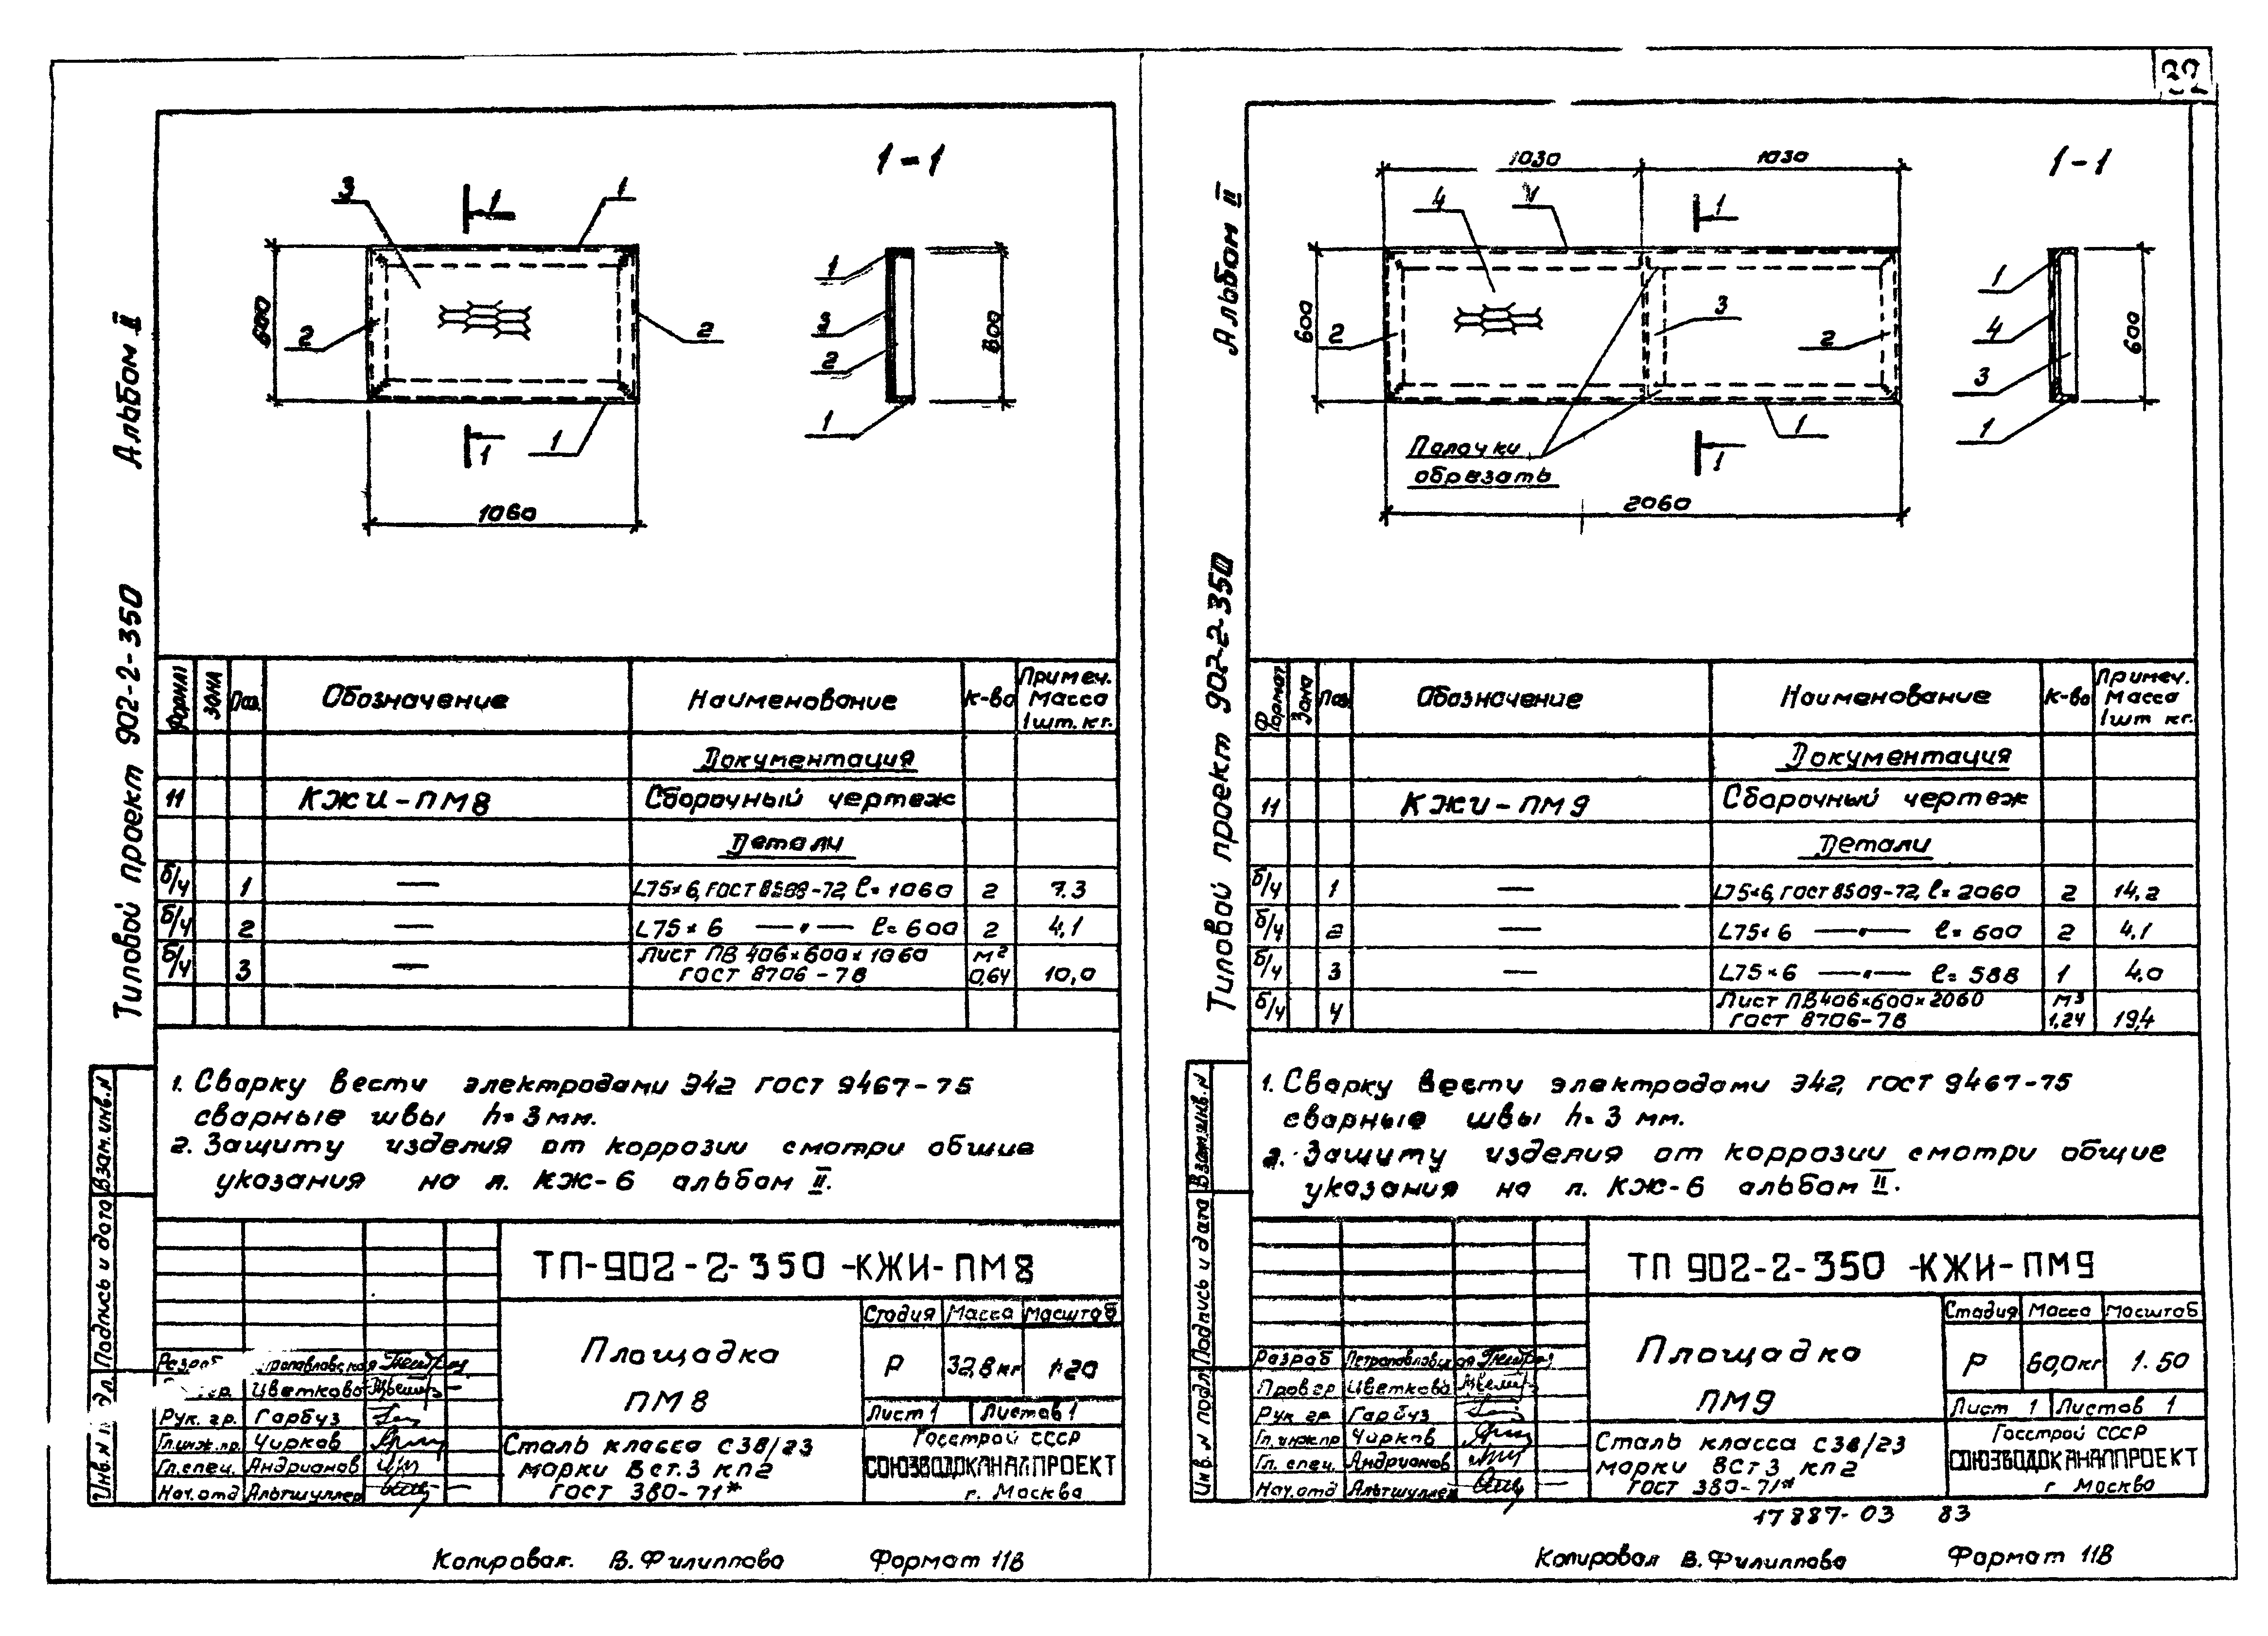 Альбом II
Типовой проект 902-2-350
1-1
3
1
1
600
2
2
1
1
1060
1
3
2
1
600
Формат
Зона
Поз.
Обозначение
Наименование
к-во
Примеч. Масса 1шт. кг.
Документация
11 КЖИ-ПМ8 Сборочный чертеж
Детали
б/ч 1 — L75×6, ГОСТ 8509-72, ℓ=1060 2 7.3
б/ч 2 — L75×6 —„— ℓ=600 2 4,1
б/ч 3 — Лист ПВ 406×600×1060 ГОСТ 8706-78 м² 0,64 10,0
1. Сварку вести электродами Э42 ГОСТ 9467-75
сварные швы h=3мм.
2. Защиту изделия от коррозии смотри общие
указания на л. КЖ-6 альбом II.
Взам.инв.N
Подпись и дата
ТП-902-2-350-КЖИ-ПМ8
Площадка
ПМ8
Стадия Масса Масштаб
Р 32,8 кг 1:20
Лист 1 Листов 1
Рук. гр. Гарбуз
Гл.инж.пр. Чирков
Гл.спец. Андрианов
Нач.отд Альтшуллер
Цветкова
Сталь класса С38/23
марки Вст.3 кп2
ГОСТ 380-71*
Госстрой СССР
СОЮЗВОДОКАНАЛПРОЕКТ
г. Москва
Копировал. В. Филиппова Формат 11В
Альбом II
Типовой проект 902-2-350
1030
1030
1-1
4
1
1
600
2
3
2
Палочки
обрезать
1
1
2060
1
4
3
1
600
Формат
Зона
Поз.
Обозначение
Наименование
к-во
Примеч. Масса 1шт кг.
Документация
11 КЖИ-ПМ9 Сборочный чертеж
Детали
б/ч 1 — L75×6, ГОСТ 8509-72, ℓ=2060 2 14,2
б/ч 2 — L75×6 —„— ℓ=600 2 4,1
б/ч 3 — L75×6 —„— ℓ=588 1 4,0
б/ч 4 Лист ПВ406×600×2060 ГОСТ 8706-78 м³ 1,24 19,4
1. Сварку вести электродами Э42, ГОСТ 9467-75
сварные швы h=3 мм.
2. Защиту изделия от коррозии смотри общие
указания на л. КЖ-6 альбом II.
Взам.инв.N
Подпись и дата
Инв. N подл
ТП 902-2-350-КЖИ-ПМ9
Площадка
ПМ9
Стадия Масса Масштаб
Р 60,0кг 1.50
Лист 1 Листов 1
Разраб Петропавловская
Провер Цветкова
Рук гр Гарбуз
Гл.инж.пр Чирков
Гл. спец. Андрианов
Нач.отд Альтшуллер
Сталь класса С38/23
марки ВСт3 кп2
ГОСТ 380-71*
Госстрой СССР
СОЮЗВОДОКАНАЛПРОЕКТ
г Москва
17887-03 83
Копировал В. Филиппова Формат 11В